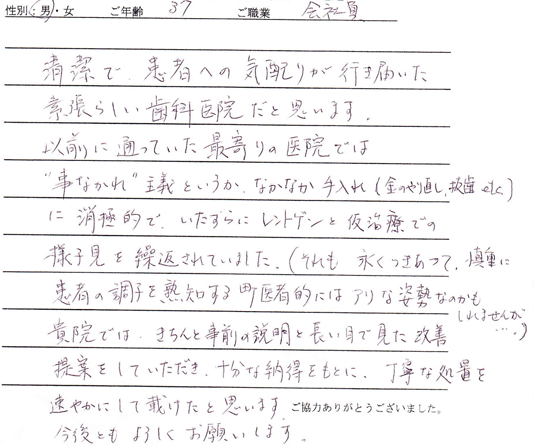 性別:男・女 ご年齢 37 ご職業 会社員
清潔で、患者への気配りが行き届いた
素張らしい歯科医院だと思います。
以前に通っていた最寄りの医院では
"事なかれ"主義というか、なかなか手入れ(金のやり直し、抜歯etc)
に消極的で、いたずらにレントゲンと仮治療での
様子見を繰返されていました。(それも永くつきあって、慎重に
患者の調子を熟知する町医者的にはアリな姿勢なのかも
しれませんが…。)
貴院では、きちんと事前の説明と長い目で見た改善
提案をしていただき、十分な納得をもとに、丁寧な処置を
速やかにして戴けたと思います。ご協力ありがとうございました。
今後ともよろしくお願いします。